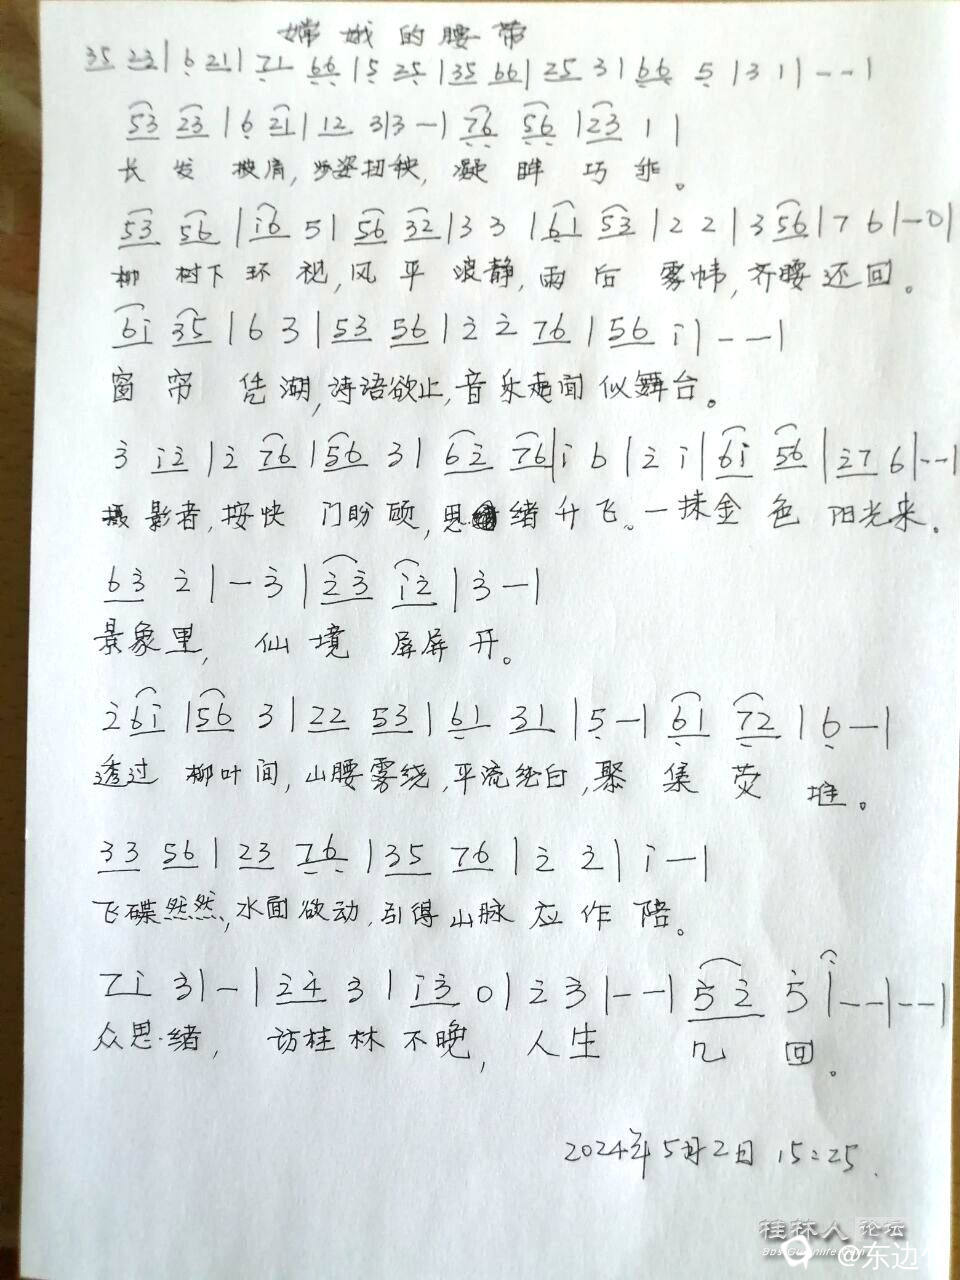 嫦娥的腰带
35 23 | 6 21 | 71 66 | 5 25 | 35 66 | 25 3 | 66 5 | 3 1 | - - |
53 23 | 6 21 | 12 3 | 3 - | 76 56 | 23 1 |
长发披肩,步姿扭秧,凝眸巧乖。
53 56 | i6 5 | 56 32 | 3 3 | 61 53 | 2 2 | 3 56 | 7 6 | - 0 |
柳树下环视,风平波静,雨后雾帏,齐腰还回。
6i 35 | 6 3 | 53 56 | 2 2 76 | 56 i | - - - |
窗帘凭湖,诗语欲止,音乐走闻似舞台。
3 i2 | 2 76 | 56 3 | 62 76 | i 6 | 2 i | 6i 56 | 27 6 | - - |
摄影者,按快门盼顾,思绪升飞。一抹金色阳光来.
63 2 | - 3 | 23 i2 | 3 - |
景象里,仙境屏屏开。
2 6i | 56 3 | 22 53 | 61 31 | 5 - | 61 72 | 6 - |
透过柳叶间,山腰雾绕,平流绝白,聚集荧堆。
33 56 | 23 76 | 35 76 | 2 2 | i - |
飞碟然然,水面欲动,引得山脉应作陪。
7i 3 | - | 24 3 | i3 0 | 2 3 | - - | 52 5 i | - - | - - |
众思绪,访桂林不晚,人生几回。
2024年5月2日 15:25.
桂林人论坛
@东边